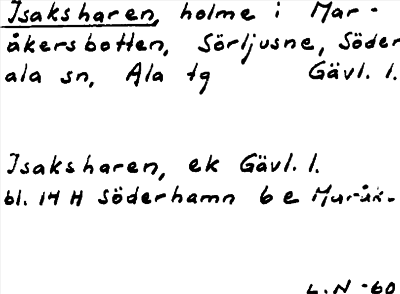 Isaksharen, holme i Mar-
åkersbotten, Sörljusne, Söder
ala sn, Ala tg Gävl. l.
Isaksharen, ek Gävl. l.
bl. 14 H Söderhamn 6 e
L.N -60